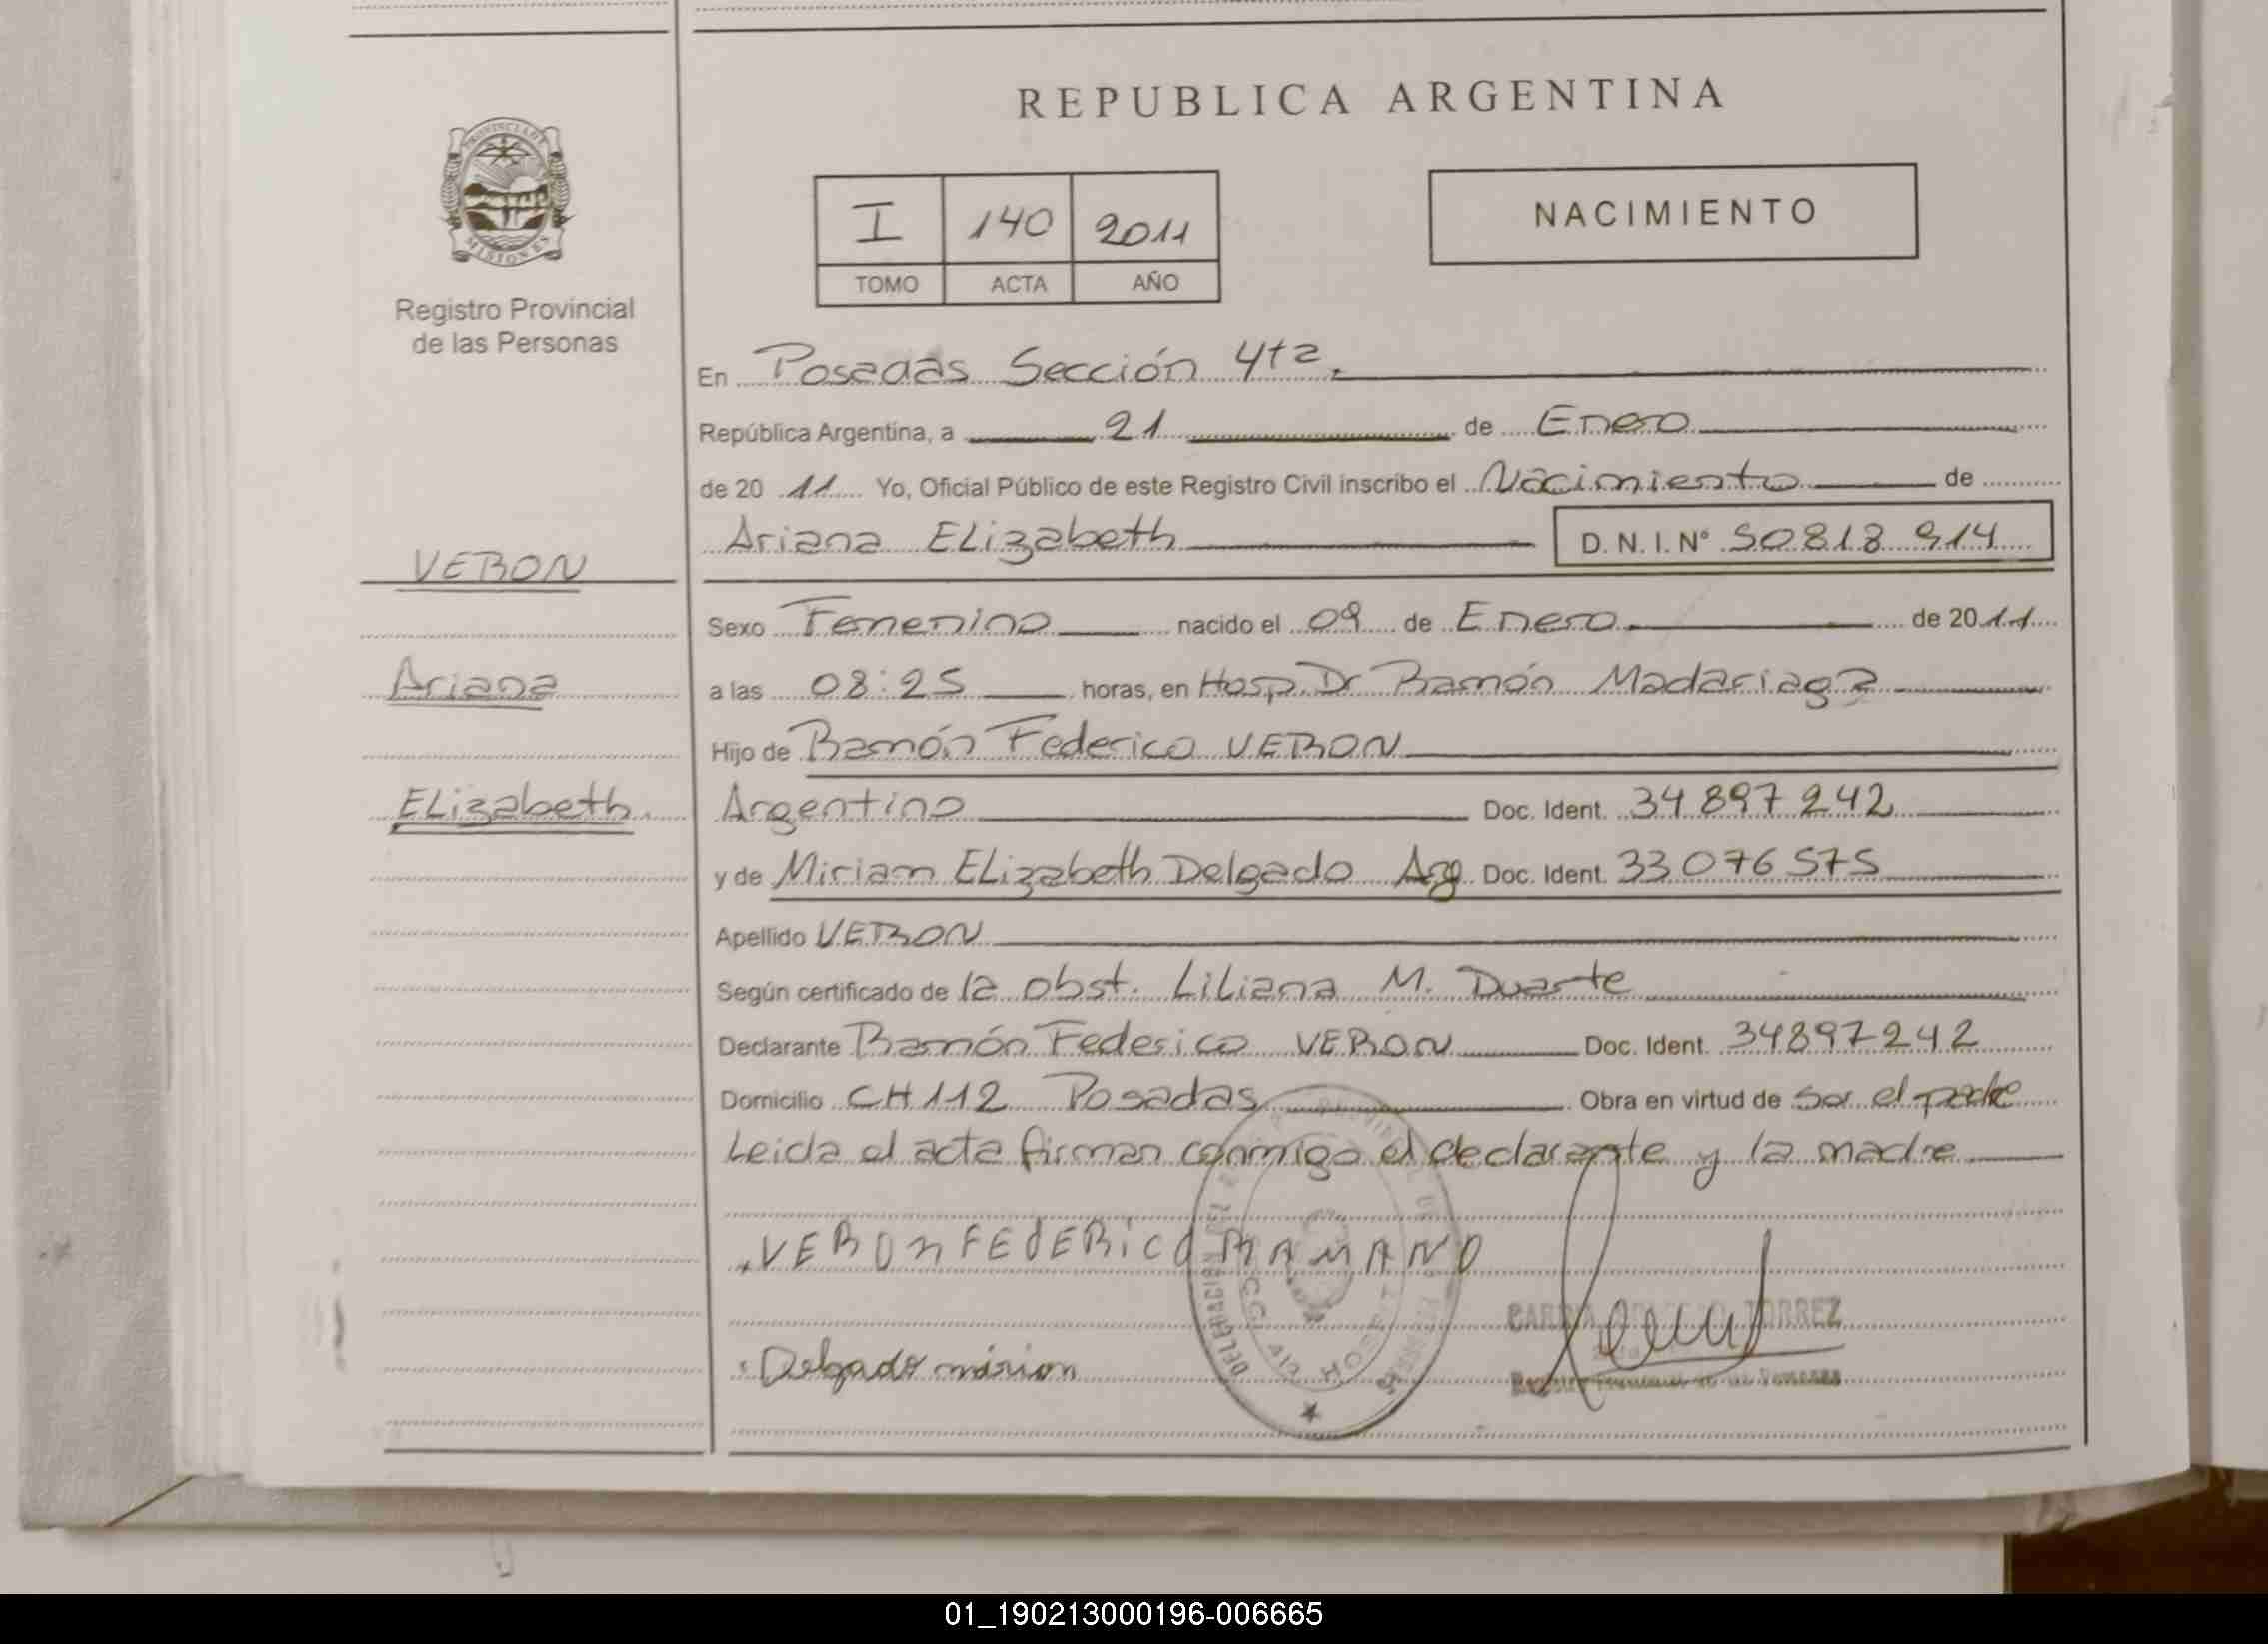 REPUBLICA ARGENTINA
PROVINCIA DE
MISIONES
Registro Provincial
de las Personas
I 140 2011
TOMO ACTA AÑO
NACIMIENTO
En Posadas Sección 4ta.
República Argentina, a 21 de Enero
de 20 11 Yo, Oficial Público de este Registro Civil inscribo el Nacimiento de
Ariana Elizabeth D. N. I. Nº 50818 914
VERON
Sexo Femenino nacido el 09 de Enero de 2011
Ariana
a las 08:25 horas, en Hosp. Dr Ramón Madariaga
Hijo de Ramón Federico VERON
Elizabeth.
Argentino Doc. Ident. 34 897 242
y de Miriam Elizabeth Delgado Arg Doc. Ident. 33 076 575
Apellido VERON
Según certificado de la obst. Liliana M. Duarte
Declarante Ramón Federico VERON Doc. Ident. 34897242
Domicilio CH 112 Posadas Obra en virtud de ser el padre
Leida el acta firman conmigo el declarante y la madre
VERON FEDERICO RAMANO
TORREZ
Delgado mirian
01_190213000196-006665